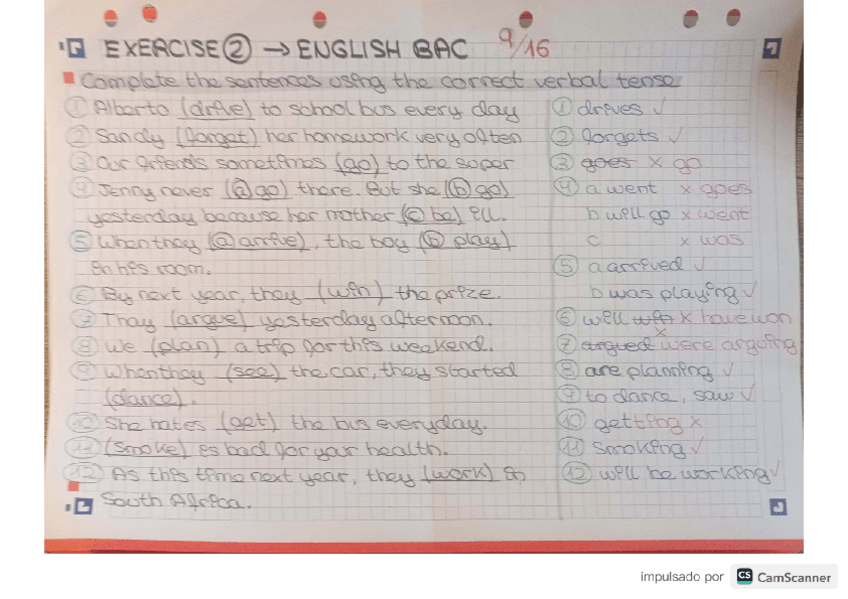 EXERCISE ② → ENGLISH BAC 9/16
Complete the sentences using the correct verbal tense
① Alberto (drive) to school bus every day
② Sandy (forget) her homework very often
③ Our friends sometimes (go) to the super
④ Jenny never (ⓐ go) there. But she (ⓑ go)
yesterday because her mother (ⓒ be) ill.
⑤ When they (ⓐ arrive), the boy (ⓑ play)
in his room.
⑥ By next year, they (win) the prize.
⑦ They (argue) yesterday afternoon.
⑧ We (plan) a trip for this weekend.
⑨ When they (see) the car, they started
(dance).
⑩ She hates (get) the bus everyday.
⑪ (Smoke) is bad for your health.
⑫ As this time next year, they (work) in
South Africa.
① drives ✓
② forgets ✓
③ goes x go
④ a went x goes
b will go x went
c x was
⑤ a arrived ✓
b was playing ✓
⑥ will win x have won
⑦ argued x were arguing
⑧ are planning ✓
⑨ to dance, saw ✓
⑩ getting x
⑪ Smoking ✓
⑫ will be working ✓
impulsado por CS CamScanner